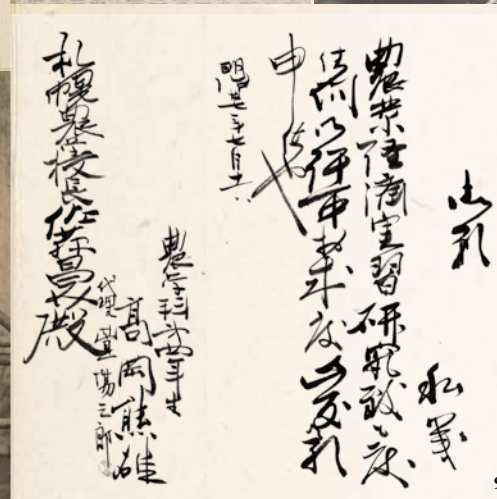 御願
私儀
農業経済実習研究致度
候間御許可被成度此段願
申候也
明治廿七年七月十六
農学科第四年生
高岡熊雄
代理 場三郎
札幌農学校長佐藤昌介殿